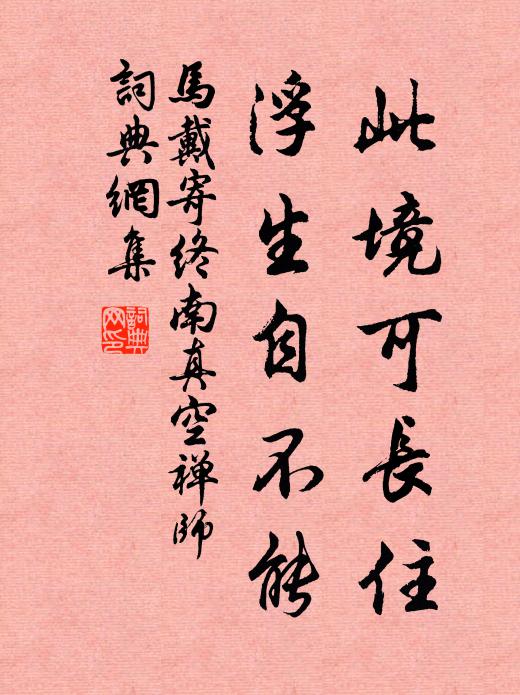 此境可長住
浮生自不能
馬戴寄終南真空禅師
詞典網集
詞典網印